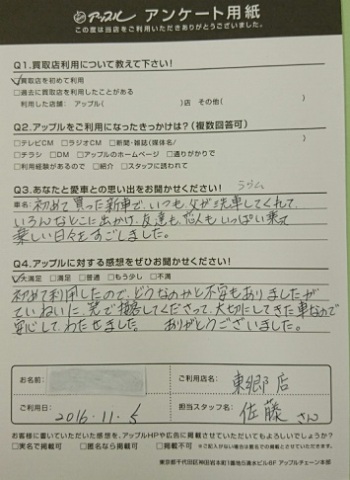 アップル アンケート用紙
この度は当店をご利用いただきありがとうございました。
Q1.買取店利用について教えて下さい!
☑買取店を初めて利用
□過去に買取店を利用したことがある
利用した店舗: アップル( )店 その他( )
Q2.アップルをご利用になったきっかけは?(複数回答可)
□テレビCM □ラジオCM □新聞・雑誌(媒体名/ )
□チラシ □DM □アップルのホームページ □通りがかりで
□利用経験があるので □紹介 □スタイルに誘われて
Q3.あなたと愛車との思い出をお聞かせください!
車名: 初めて買った新車で、いつも父が洗車してくれて、
いろんなとこに出かけ、友達も、恋人もいっぱい乗って
楽しい日々をすごしました。
Q4.アップルに対する感想をぜひお聞かせください!
☑大満足 □満足 □普通 □もう少し □不満
初めて利用したので、どうなのかと不安もありましたが
ていねいに、笑で接客してくださって、大切にしてきた車なので
安心してわたせました。 ありがとうございました。
お名前:
ご利用店名: 東郷店
ご利用日: 2016.11.5
担当スタッフ名: 佐藤さん
お客様に書いていただいた感想を、アップルHPや広告に掲載させていただいてもよろしいでしょうか?
□実名で掲載可 □匿名なら掲載可 □掲載不可
※ご記入がない場合は匿名での掲載とさせていただきます。
東京都千代田区神田岩本町1番地5清水ビル6F アップルチェーン本部